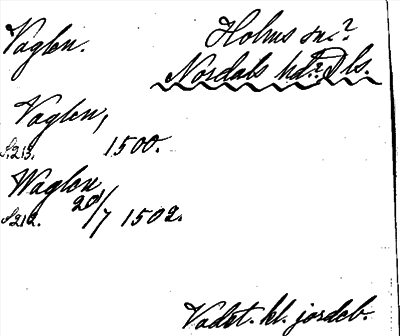 Vaglen.
Holms sn?
Nordals hd? Dls.
Vaglen,
S. 213. 1500.
Waglen
S 212. 20/7 1502.
Vadst. kl. jordeb.